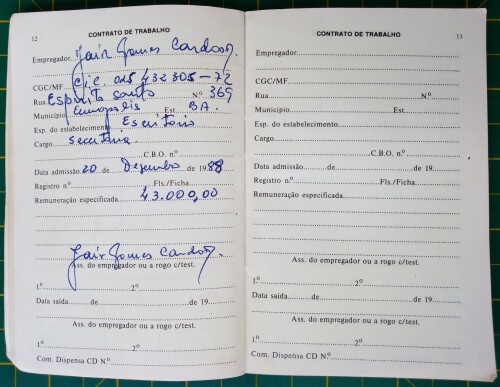 12 CONTRATO DE TRABALHO
Empregador Jair Gomes Cardoso
CGC/MF C.i.C. 025 432 305-72
Rua Espirito Santo Nº 369
Município Eunapolis Est. BA.
Esp. do estabelecimento Escritorio
Cargo Secretaria
C.B.O. nº
Data admissão 20 de Dezembro de 1988
Registro nº Fls./Ficha
Remuneração especificada 43.000,00
Jair Gomes Cardoso
Ass. do empregador ou a rogo c/test.
1º 2º
Data saída de de 19
Ass. do empregador ou a rogo c/test.
1º 2º
Com. Dispensa CD Nº
CONTRATO DE TRABALHO 13
Empregador
CGC/MF
Rua Nº
Município Est.
Esp. do estabelecimento
Cargo
C.B.O. nº
Data admissão de de 19
Registro nº Fls./Ficha
Remuneração especificada
Ass. do empregador ou a rogo c/test.
1º 2º
Data saída de de 19
Ass. do empregador ou a rogo c/test.
1º 2º
Com. Dispensa CD Nº